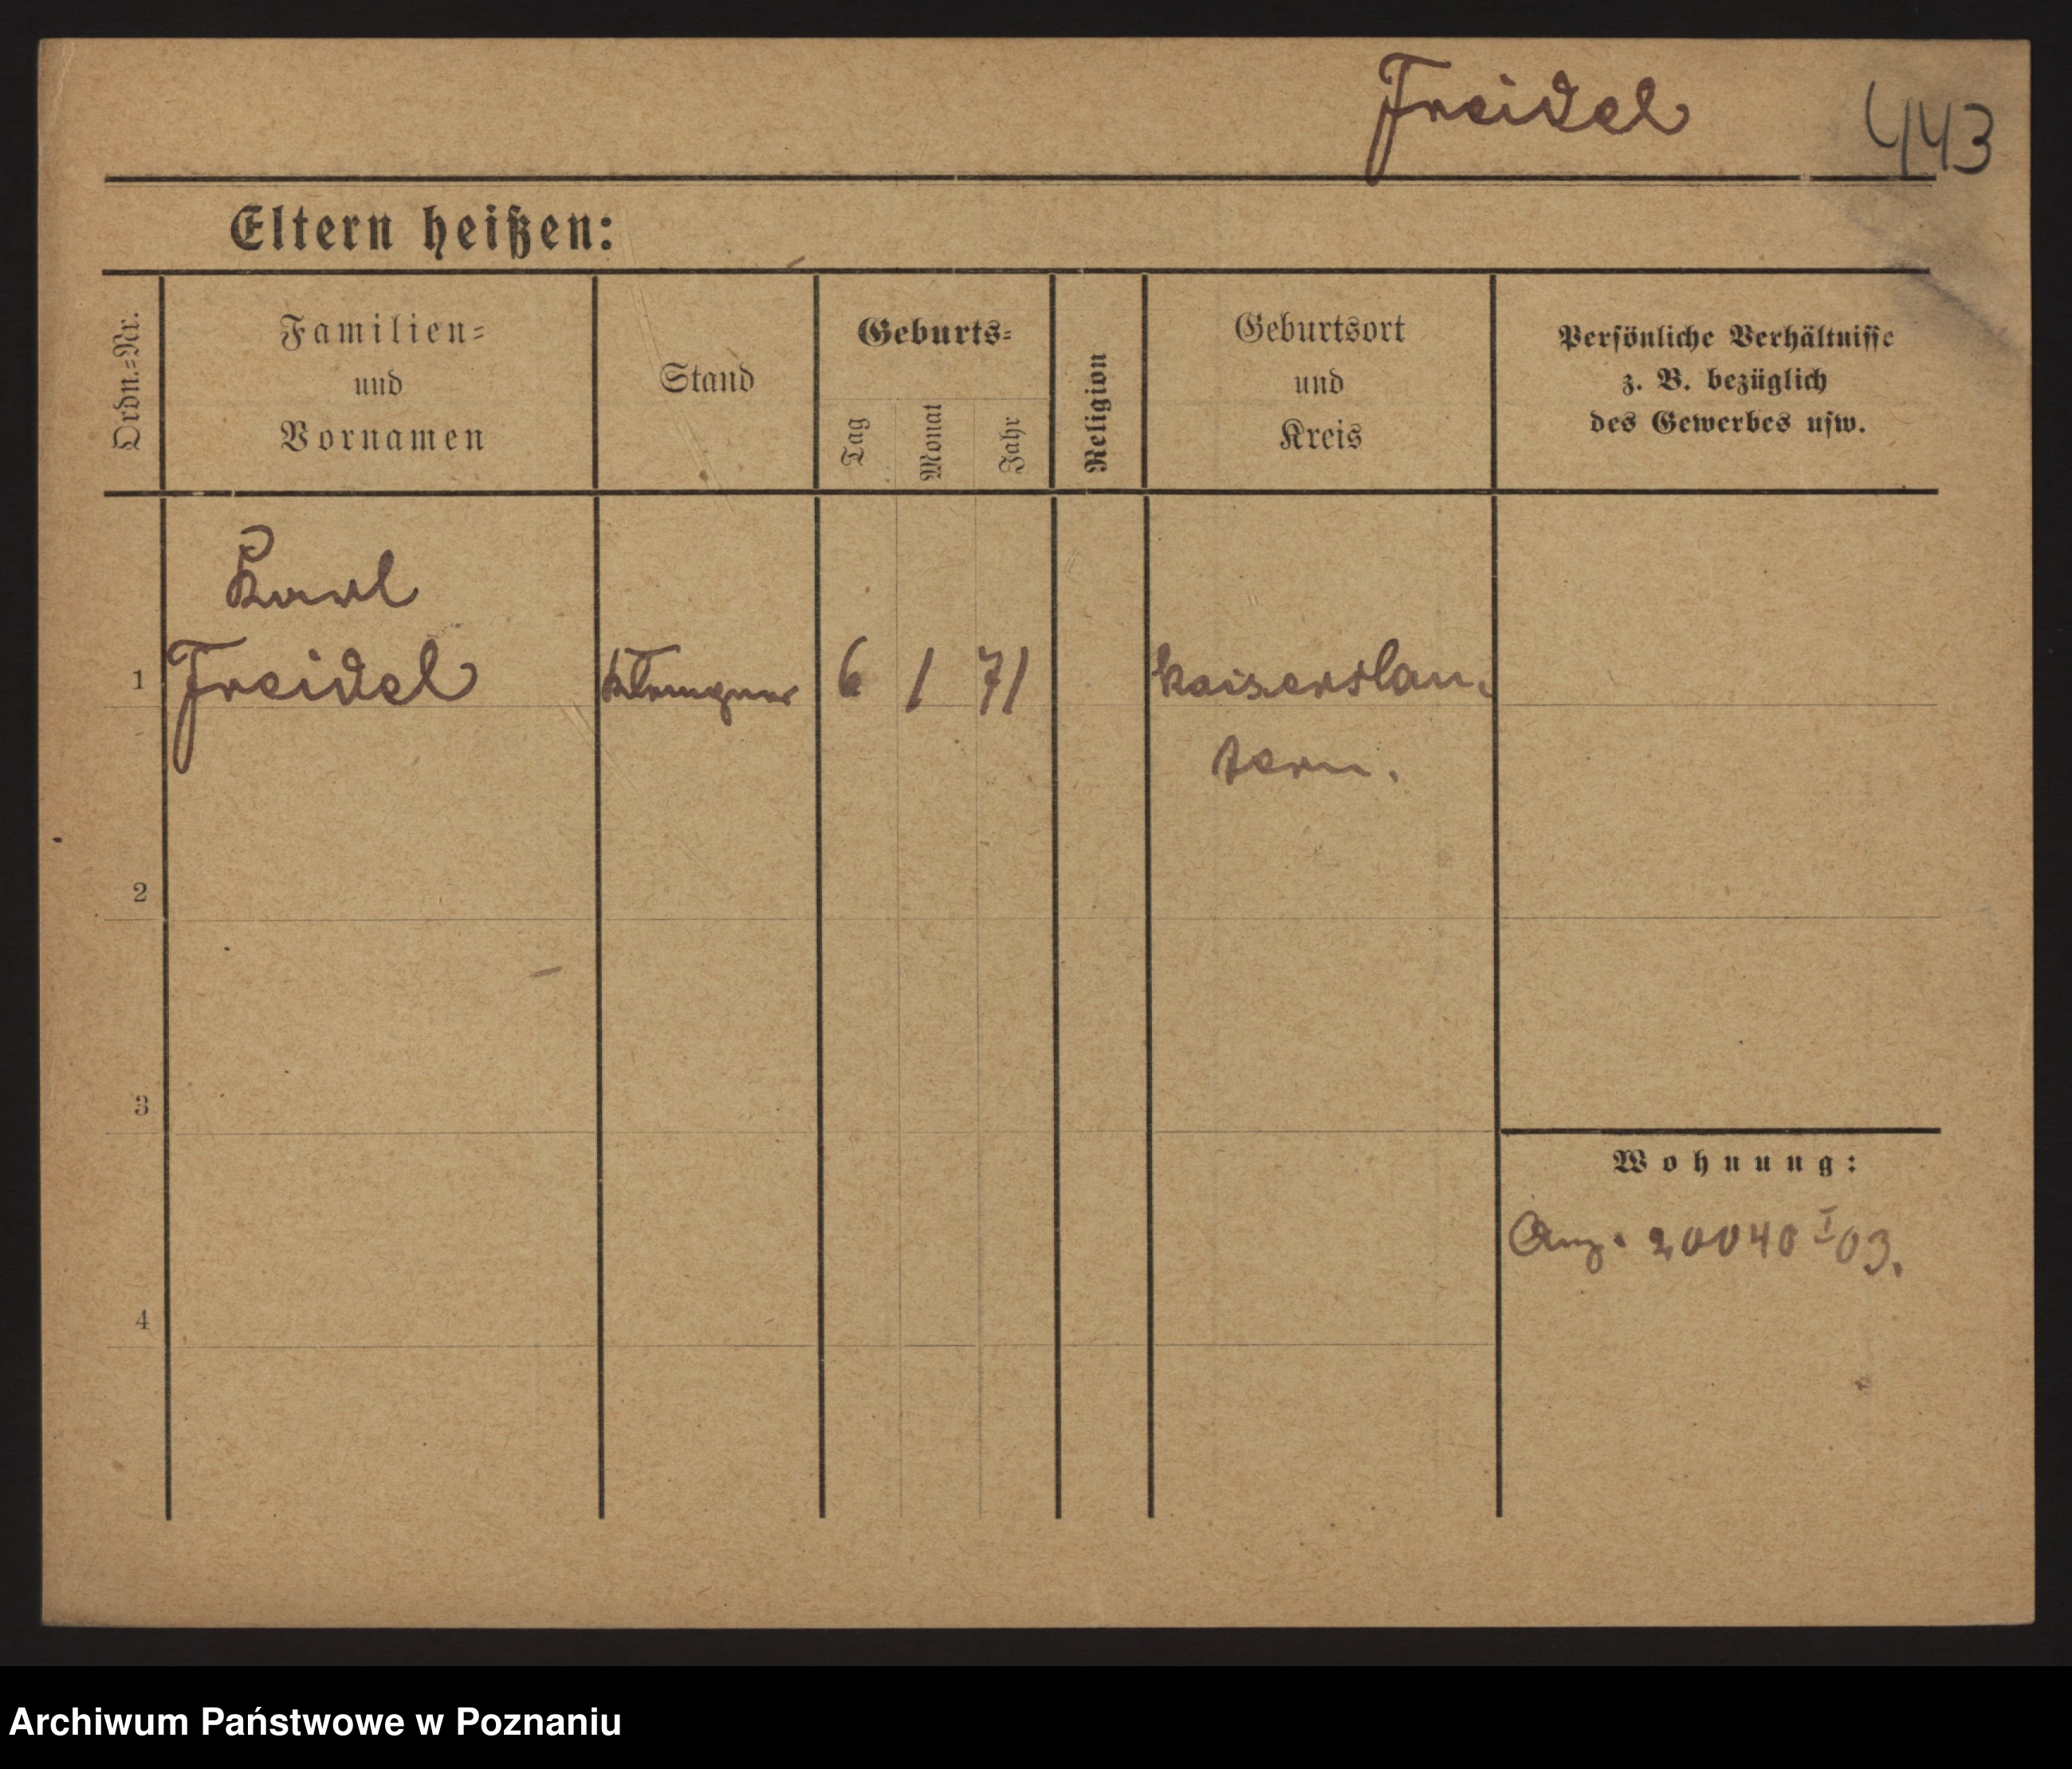 Freidel 443
Eltern heißen:
Ordn.=Nr.
Familien=
und
Vornamen
Stand
Geburts=
Tag
Monat
Jahr
Religion
Geburtsort
und
Kreis
Persönliche Verhältnisse
z. B. bezüglich
des Gewerbes usw.
Karl
1 Freidel Klempner 6 1 71 Kaiserslau-
tern.
2
3
Wohnung:
Anz. 20040 I 03.
4
Archiwum Państwowe w Poznaniu